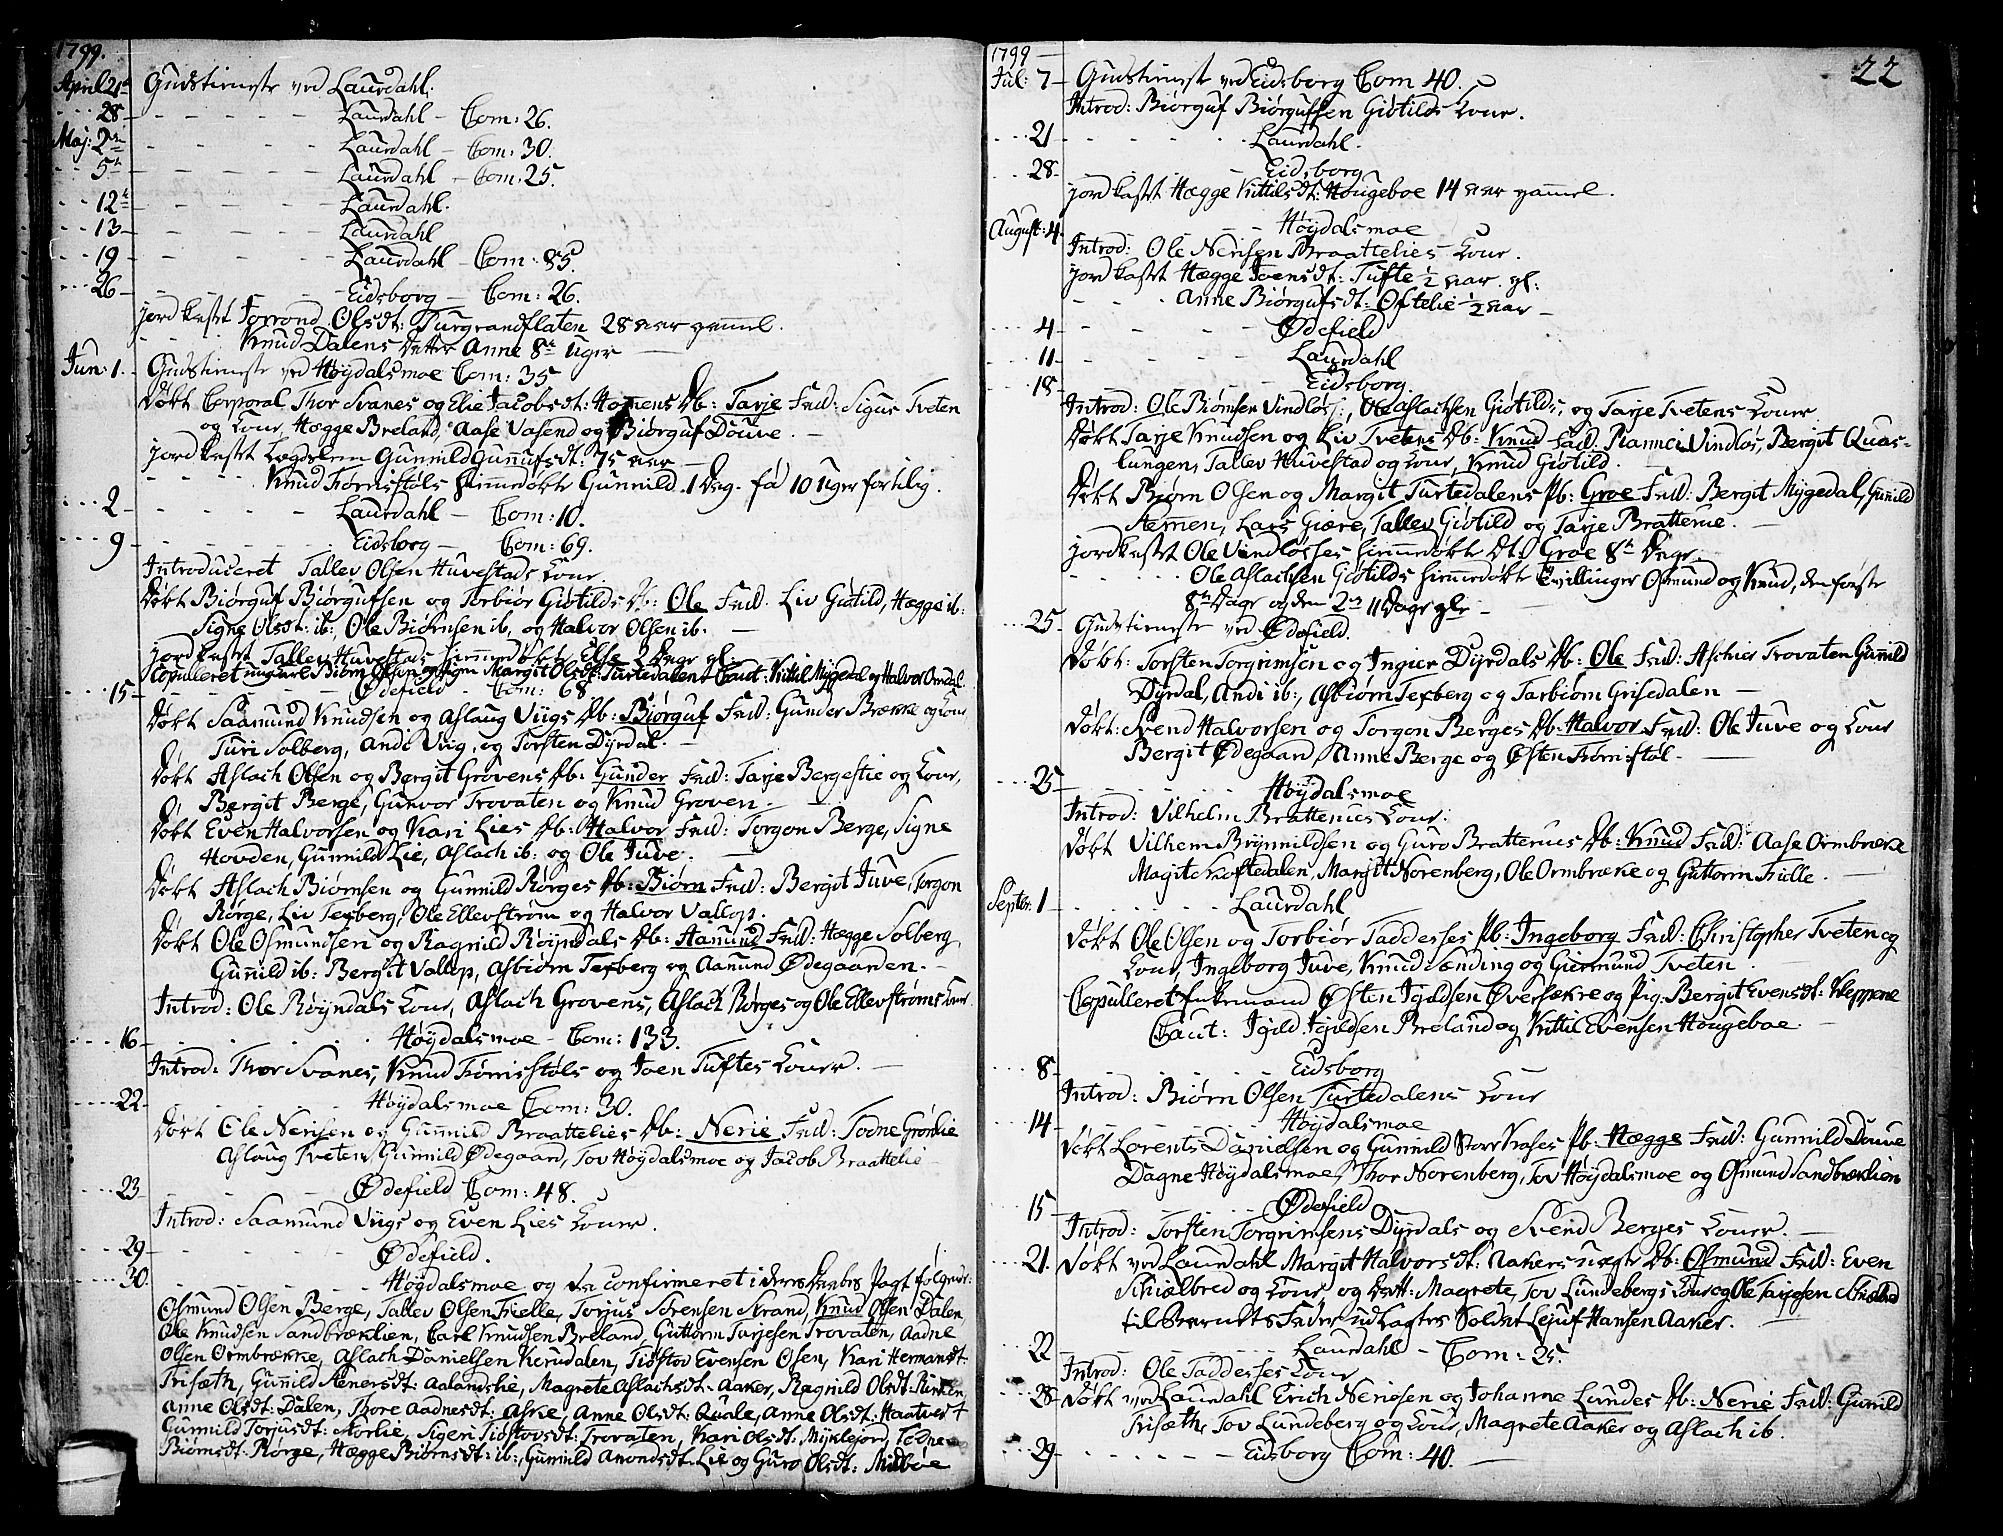 1799.
April 21de Gudstieneste ved Laurdahl.
28 Laurdahl - Com: 26.
Maj: 2den Laurdahl - Com: 30.
5te Laurdahl - Com: 25.
12te Laurdahl.
13 Laurdahl
19 Laurdahl - Com: 85.
26 Eidsborg - Com: 26.
jordkastet Torrond Olsdt: Turgrandflaten 28 aar gammel.
Knud Dalens Datter Anne 8te Uger
Jun: 1. Gudstieneste ved Høydalsmoe Com: 35
Døbt Corporal Thor Svanes og Elie Jacobsdt: Homens Db: Tarje Fad: Sigur Tveten
og Kour, Hægge Breland, Aase Vasend og Biørguf Douve.
jordkastet Lægdslem Gunnild Gunnufsdt: 75 aar
Knud Tørnisstøls hiemmedøbte Gunnild 1 Dag. fød 10 Uger for tilig.
2 Laurdahl - Com: 10.
9 Eidsborg - Com: 69.
Introduceret Tallev Olsen Huvestads Kour.
Døbt Biørguf Biørgufsen og Torbiør Giøtilds Db: Ole Fad: Liv Giøtild, Hægge ib:
Signe Olsdt: ib:, Ole Biørnsen ib, og Halvor Olsen ib.
jordkastet Tallev Huvestads hiemmedøbte Else 2 Dage gl.
Copulleret ungkarl Biørn Olsen og Pigen Margit Olsdt: Turtedalen Caut: Kittil Mygedal og Halvor Omdal
15 Ødefield - Com: 68
Døbt Saamund Knudsen og Aslaug Viigs Db: Biørguf Fad: Gunder Brække og Kour
Turi Solberg, Andi Viig, og Torsten Dyrdal.
Døbt Aslach Olsen og Bergit Grovens Db: Gunder Fad: Tarje Bergestie og Kour,
Bergit Berge, Gunvor Trovaten og Knud Groven.
Døbt Even Halvorsen og Kari Lies Db: Halvor Fad: Torgon Berge, Signe
Hovden, Gunnild Lie, Aslach ib: og Ole Juve.
Døbt Aslach Biørnsen og Gunnild Rørges Db: Biørn Fad: Bergit Juve, Torgon
Rørge, Liv Texberg, Ole Ellevstrøm og Halvor Vallop.
Døbt Ole Osmundsen og Ragnild Røyndals Db: Aamund Fad: Hægge Solberg
Gunnild ib: Bergit Vallop, Asbiørn Texberg og Aamund Ødegaarden.
Introd: Ole Røyndals Kour, Aslach Grovens, Aslach Rørges og Ole Ellevstrøms Kour.
16 Høydalsmoe - Com: 133.
Introd: Thor Svanes, Knud Tørnisstøls og Joen Tuftes Kouer.
22 Høydalsmoe Com: 30.
Døbt Ole Nerisen og Gunnild Braattelies Db: Nerie Fad: Todne Grønlie
Aslaug Tveten, Gunnild Ødegaard, Tov Høydalsmoe og Jacob Braattelie
23 Ødefield Com: 48.
Introd: Saamund Viigs og Even Lies Kouer.
29 Ødefield.
30 Høydalsmoe og da confirmeret i deres Daabes Pagt følgende:
Osmund Olsen Berge, Tallev Olsen Fielle, Torjus Sørensen Strand, Knud Olsen Dalen,
Ole Knudsen Sandbræklien, Carl Knudsen Breland, Guttorm Tarjesen Trovaten, Aadne
Olsen Ormbrække, Aslach Danielsen Kerudalen, Tiøstov Evensen Osen, Kari Hermansdt:
Trisæth, Gunnild Aenersdt: Aalandslie, Magrete Aslachsdt: Aaker, Ragnild Olsdt:
Anne Olsdt: Dalen, Thore Aadnesdt: Aske, Anne Olsdt: Quale, Anne Olsdt: Haatvet
Gunnild Torjusdt: Norlie, Sigeri Tiøstovsdt: Trovaten, Kari Olsdt: Myklejord, Todne
Biørnsdt: Rørge, Hægge Biørnsdt: ib:, Gunnild Anondsdt: Lie og Guro Olsdt: Midboe
22
1799
Jul: 7 Gudstieneste ved Eidsborg Com 40.
Introd: Biørguf Biørgufsen Giøtilds Kour.
21 Laurdahl.
28 Eidsborg
jordkastet Hægge Kittilsdt: Hougeboe 14 aar gammel.
August: 4 Høydalsmoe
Introd: Ole Nerisen Braattelies Kour.
jordkastet Hægge Joensdt: Tufte 1/2 aar gl:
Anne Biørgufsdt: Oftelie 1/2 aar
4 Ødefield
11 Laurdahl
18 Eidsborg.
Introd: Ole Biørnsen Vindløs:, Ole Aslachsen Giøtilds, og Tarje Tvetens Kouer
Døbt Tarje Knudsen og Liv Tvetens Db: Knud Fad: Rannei Vindløs, Bergit Quas-
lungen, Tallev Huvestad og Kour, Knud Giøtild.
Døbt Biørn Olsen og Margit Turtedalens Pb: Groe Fad: Bergit Mygedal, Gunnild
Aemen, Lars Giære, Tallev Giøtild og Tarje Bratterue.
jordkastet Ole Vindløsses hiemmedøbte Dt: Groe 8te Dage.
Ole Aslachsen Giøtilds hiemmedøbte Tvillinger Osmund og Knud, den første
8te Dage og den 2den 11 Dage gl.
25 Gudstieneste ved Ødefield.
Døbt: Torsten Torgrimsen og Ingier Dyrdals Db: Ole Fad: Aschier Trovaten Gunnild
Dyrdal, Andi ib:, Asbiørn Texberg og Tarbiørn Grisedalen
Døbt: Svend Halvorsen og Torgon Berges Db: Halvor Fad: Ole Juve og Kour
Bergit Ødegaard, Anne Berge og Østen Tørnisstøl.
25 Høydalsmoe
Introd: Vilhelm Bratterues Kour.
Døbt Vilhem Brynnildsen og Guro Bratterues Db: Knud Fad: Aase Ormbrække
Magit Koftedalen, Margit Norenberg, Ole Ormbrække og Guttorm Fielle.
Septbr: 1 Laurdahl
Døbt Ole Olsen og Torbiør Taddesses Pb: Ingeborg Fad: Christopher Tveten og
Kour, Ingeborg Juve, Knud Lænding og Giermund Tveten
Copulleret Enkemand Østen Igildsen Øversække og Pig: Bergit Evensdt: Kleppene
Caut: Igild Igildsen Breland og Kittil Evensen Hougeboe.
8 Eidsborg
Introd: Biørn Olsen Turtedalens Kour
14 Høydalsmoe
Døbt Lorents Danielsen og Gunnild Storekaases Pb: Hægge Fad: Gunnild Douve
Dagne Høydalsmoe, Thor Norenberg, Tov Høydalsmoe og Osmund Sandbræklien
15 Ødefield
Introd: Torsten Torgrimsens Dyrdals og Svend Berges Kouer.
21. Døbt ved Laurdahl Margit Halvorsdt: Aakers uægte Db: Osmund Fad: Even
Schiælbred og Kour og Datt: Magrete, Tov Lundebergs Kour og Ole Tarjesen
til Barnets Fader udlagtes Soldat Lejuf Hansen Aaker.
22 Laurdahl - Com: 25.
Introd: Ole Taddesses Kour
28 Døbt ved Laurdahl Erich Neriesen og Johanne Lundes Db: Nerie Fad: Gunnild
Trisæth, Tov Lundeberg og Kour, Magrete Aaker og Aslach ib.
29 Eidsborg Com: 40.